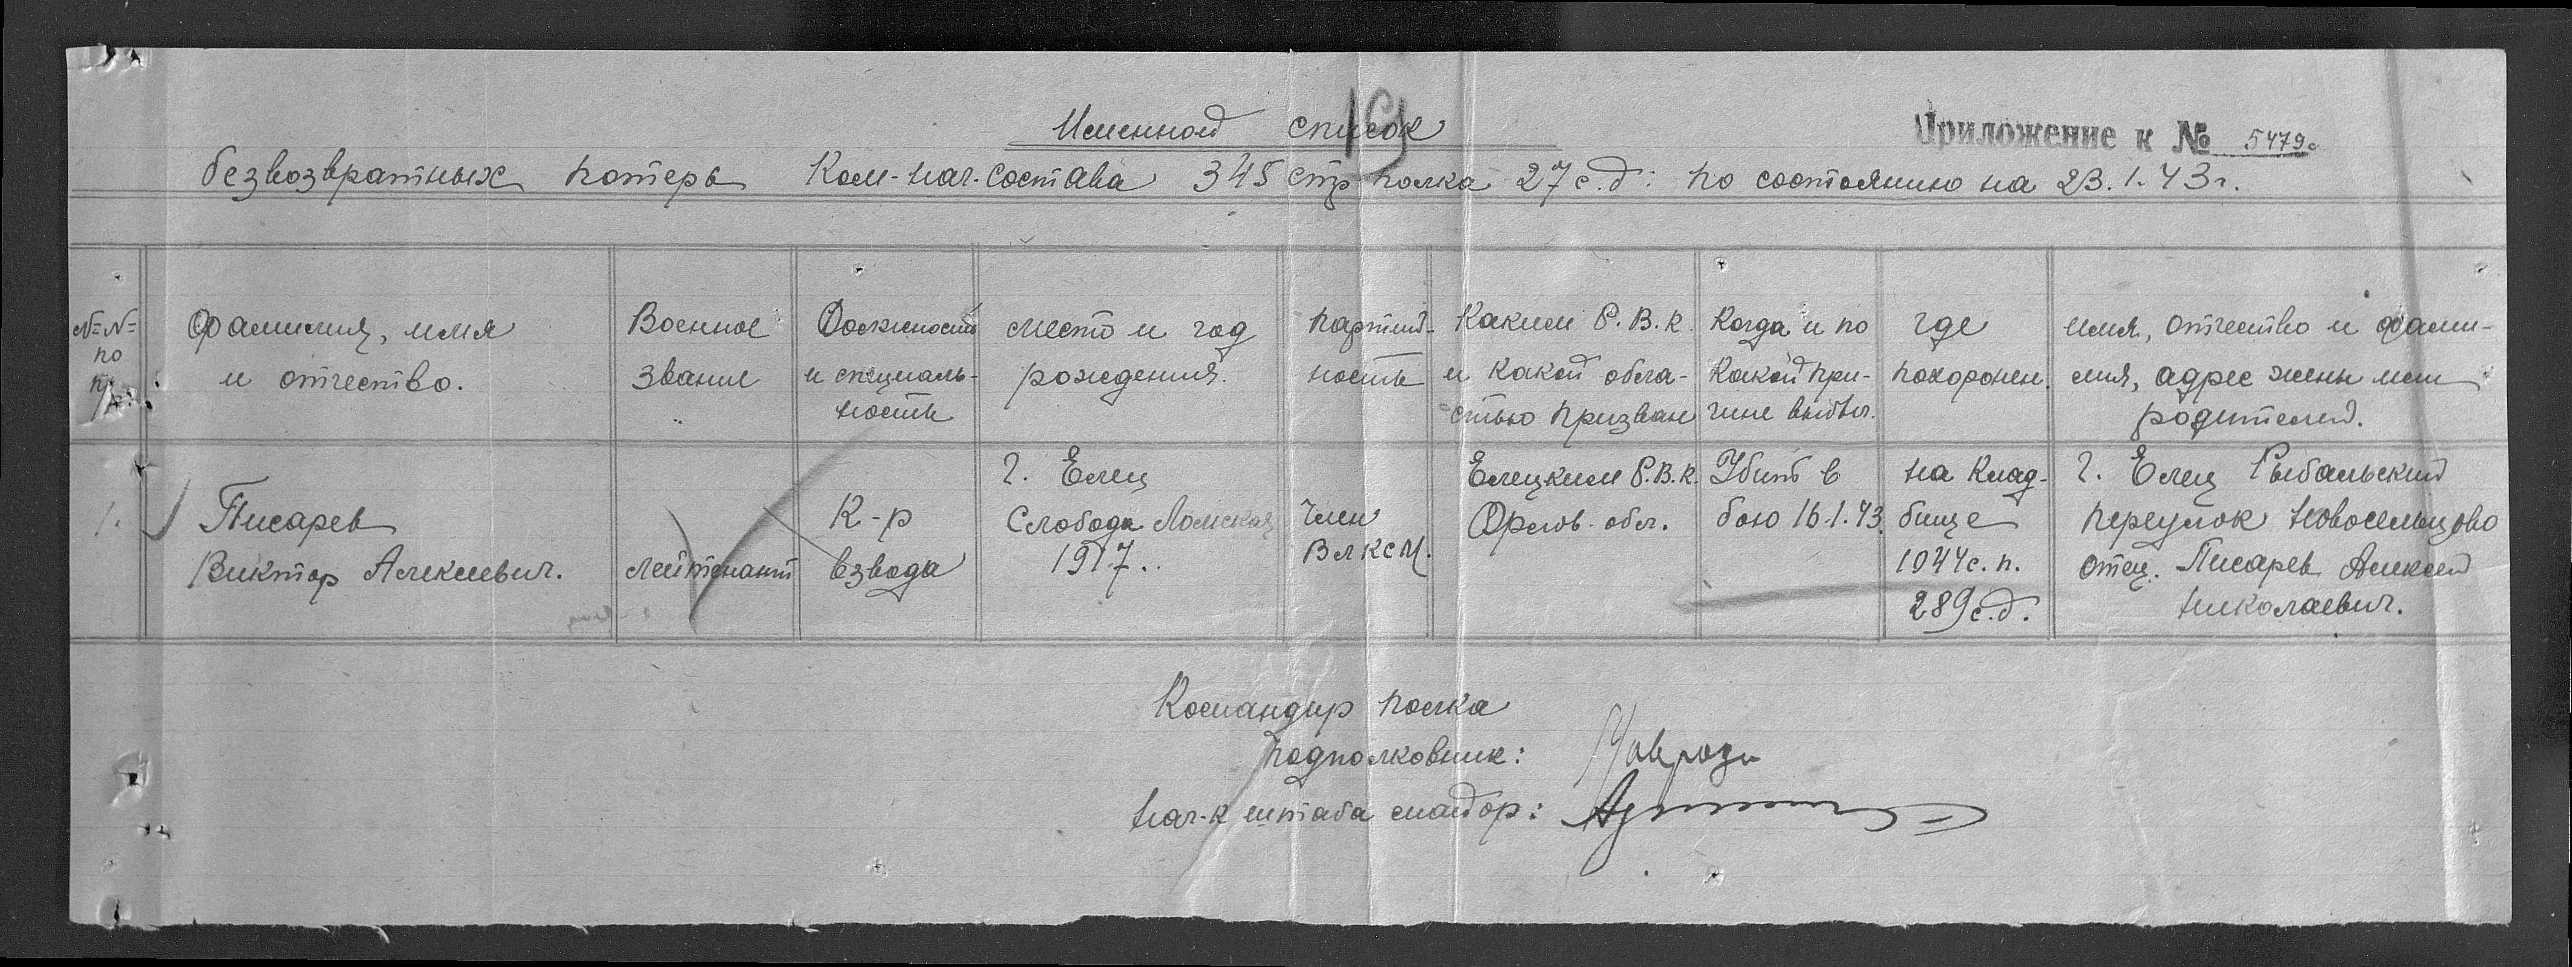 19
Именной список
Приложение к № 5479с
безвозвратных потерь Ком-нач. состава 345 стр полка 27 с.д. по состоянию на 23.1.43г.
№№ по п/п.
Фамилия, имя и отчество.
Военное звание
Должность и специальность
место и год рождения.
партийность
Каким Р.В.К. и какой областью призван
Когда и по какой причине выбыл.
где похоронен.
имя, отчество и фамилия, адрес жены или родителей.
1.
Писарев
Виктор Алексеевич.
лейтенант
К-р
взвода
г. Елец
Слобода Ламская
1917.
Член
ВЛКСМ.
Елецким Р.В.К.
Орлов. обл.
Убит в
бою 16.1.43.
на клад-
бище
1044 с.п.
289 с.д.
г. Елец Рыбальский
переулок Новосельцово
отец. Писарев Алексей
Николаевич.
Командир полка
подполковник:
Нач-к штаба майор: